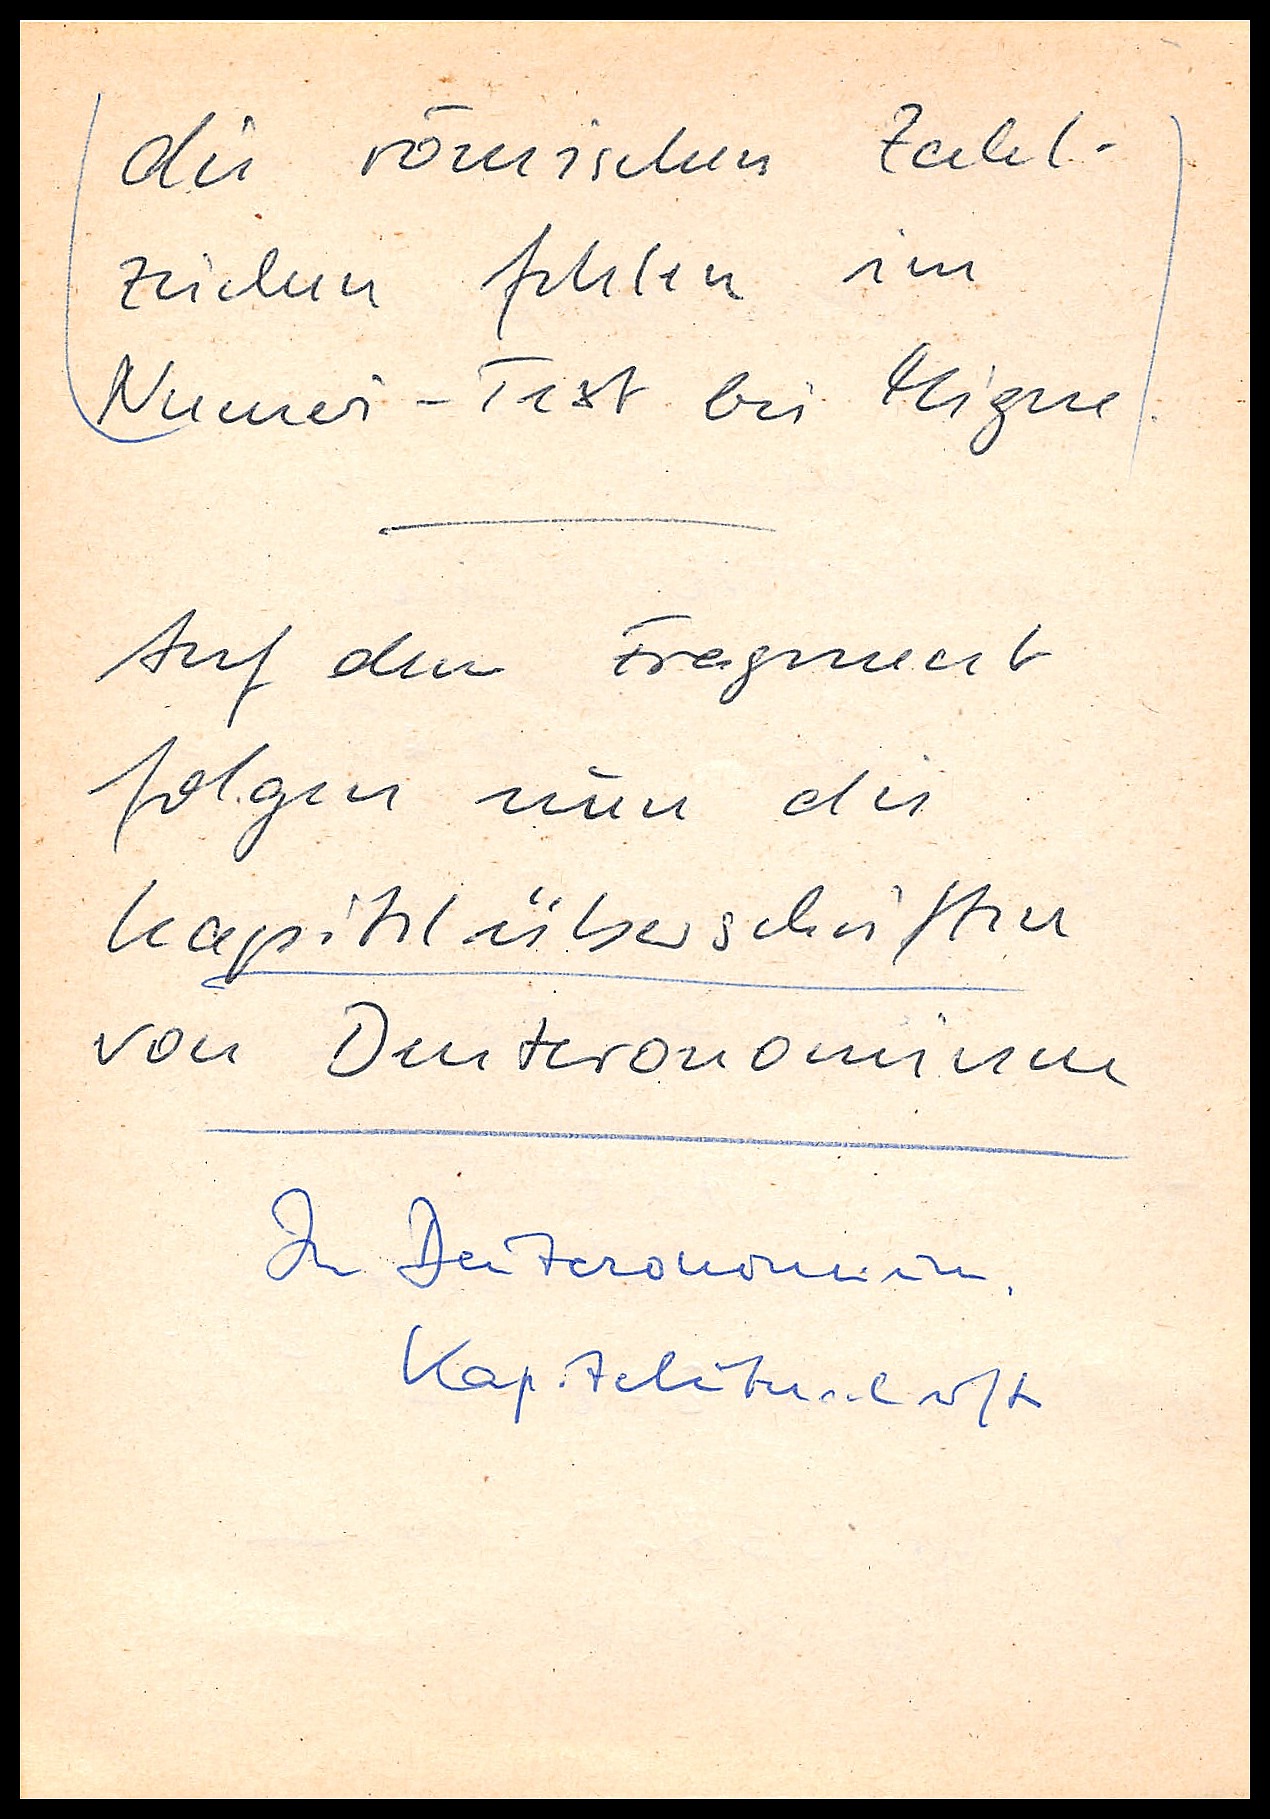 (die römischen Zahl-
zeichen fehlen im
Numeri-Text bei Migne).
Auf dem Fragment
folgen nun die
Kapitelüberschriften
von Deuteronomium
In Deuteronomium,
Kapitelüberschrift